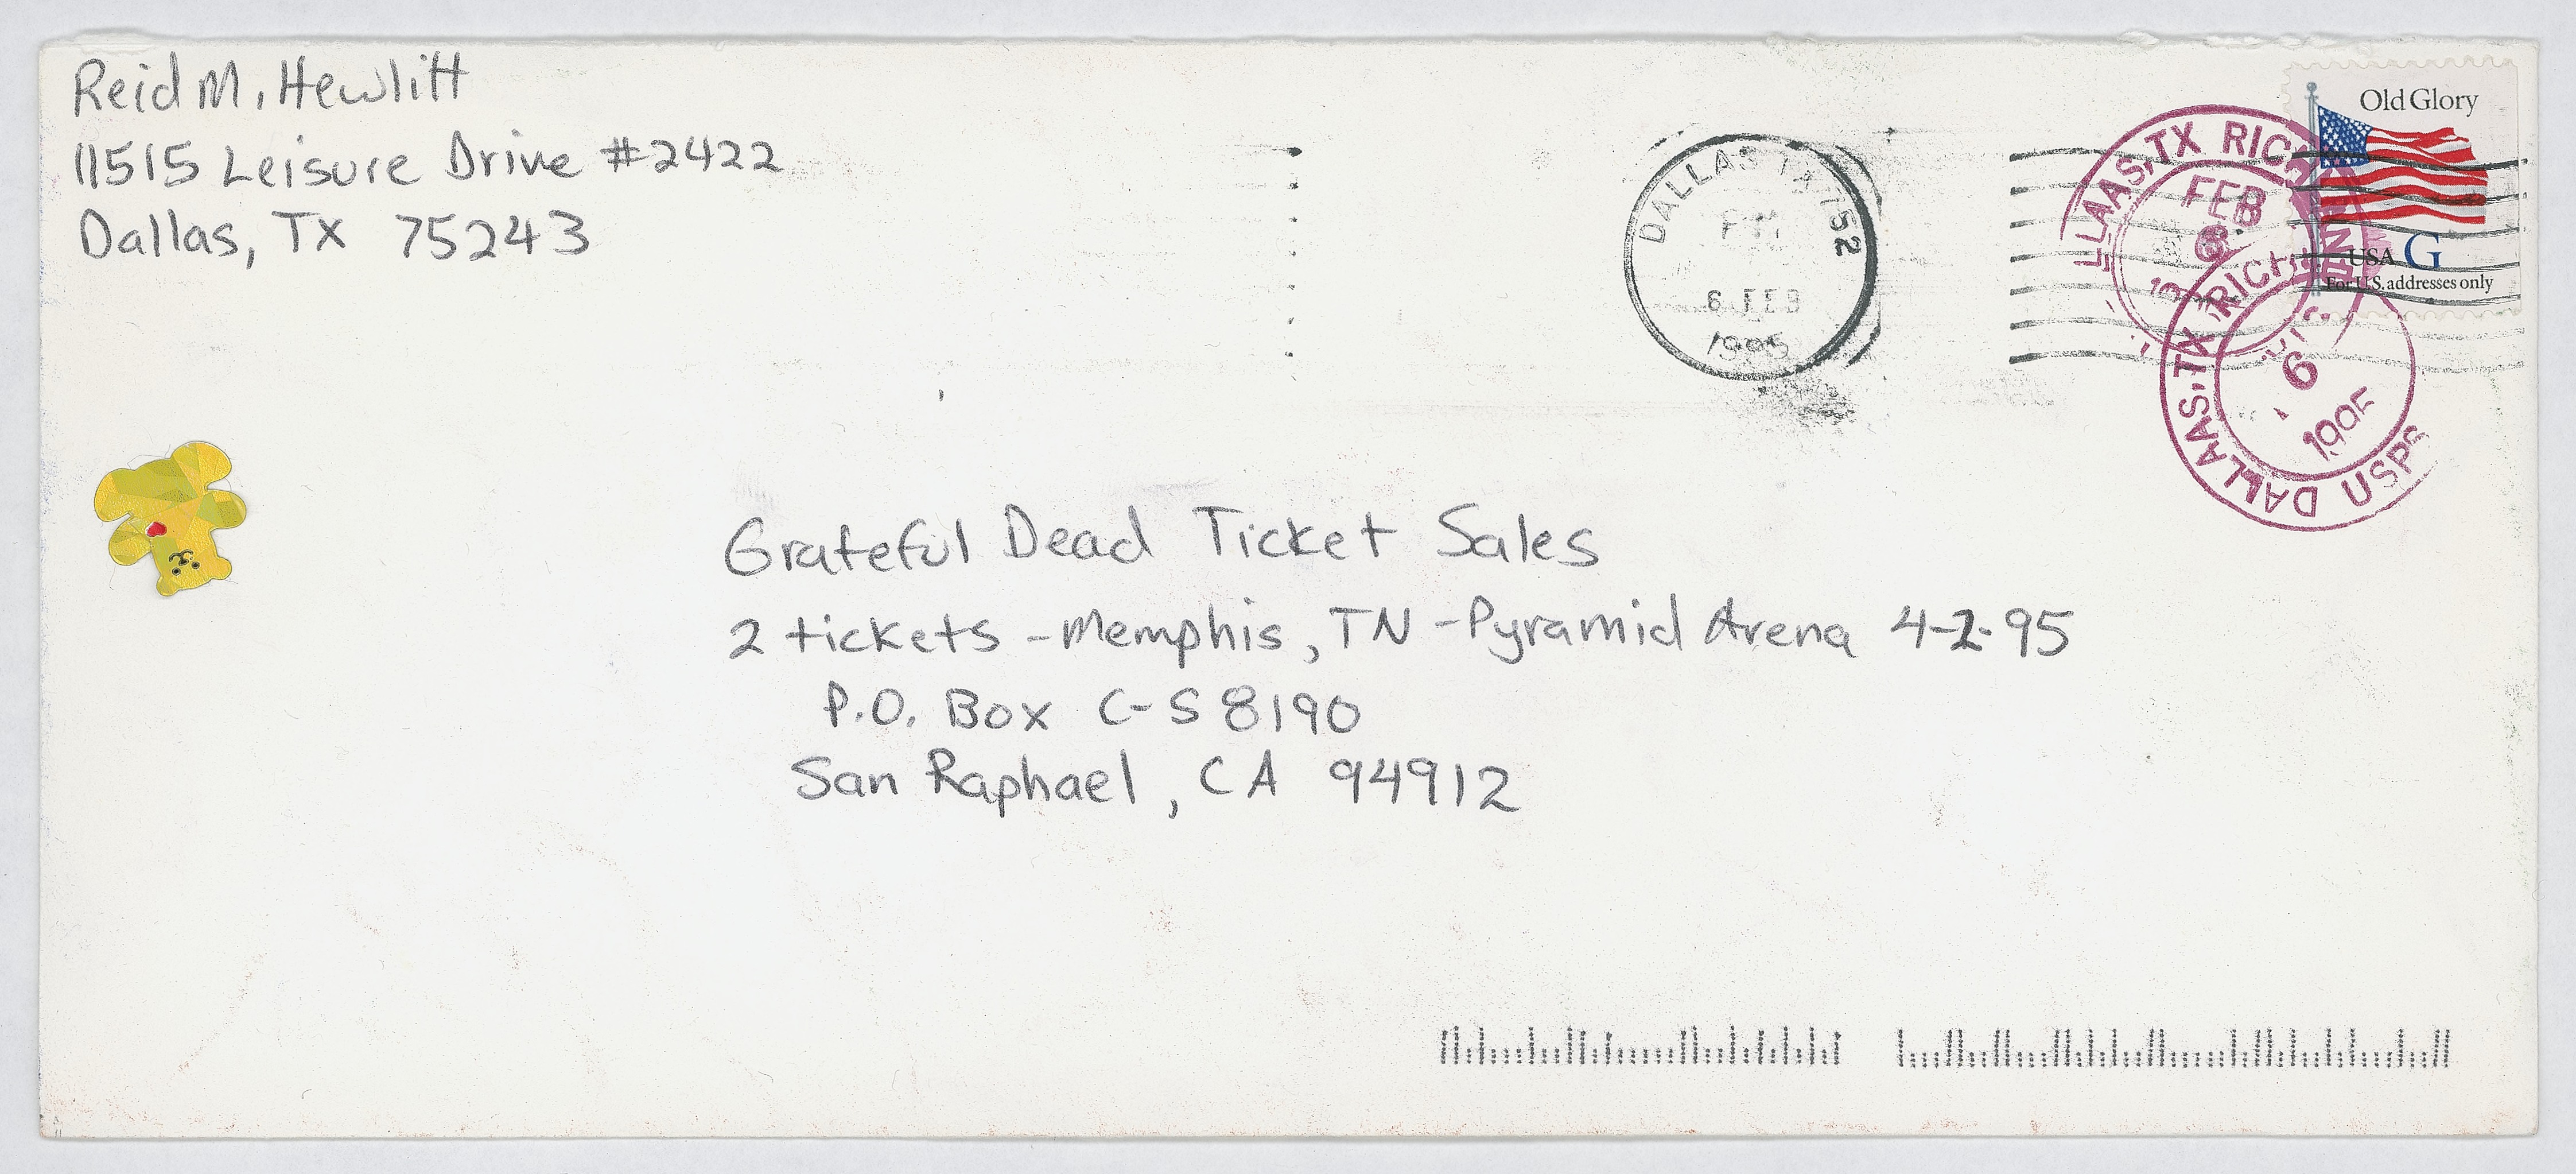 Reid M. Hewlitt
11515 Leisure Drive #2422
Dallas, TX 75243
DALLAS TX 752
PM
6 FEB
1995
Old Glory
USA G
For U.S. addresses only
LLAAS, TX RICH
FEB
6
DALLAAS, TX RICH
6
1995
USPS
Grateful Dead Ticket Sales
2 tickets - Memphis, TN - Pyramid Arena 4-2-95
P.O. Box C-S 8190
San Raphael, CA 94912